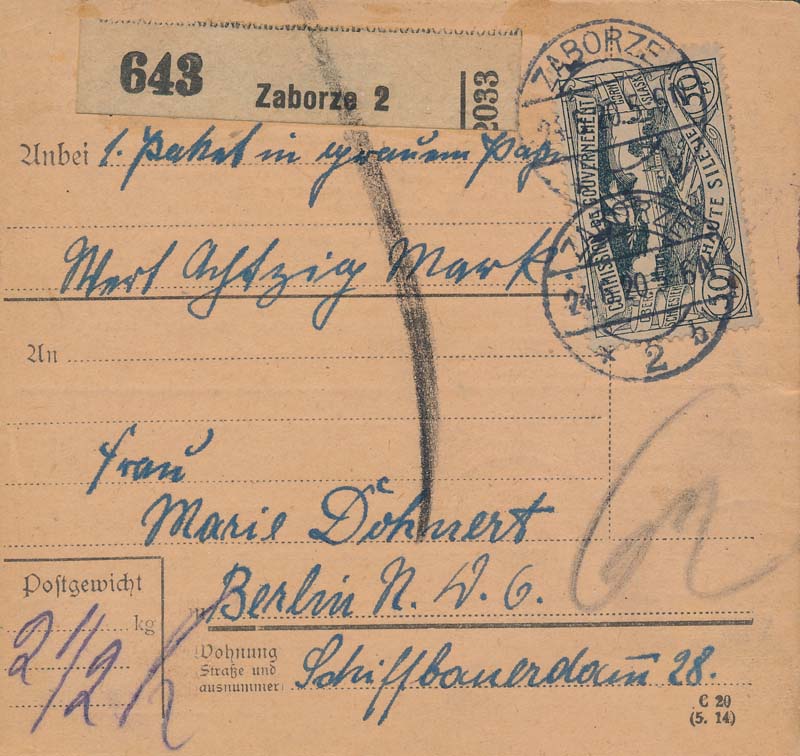 643
Zaborze 2
2033
ZABORZE
COMMISSION DE GOUVERNEMENT
HAUTE SILESIE
50
50
24
20.5-6N
* 2 b
Anbei 1. Paket in grauem
Wert Achtzig Mark.
An
Frau
Marie Döhnert
Berlin N. W. 6.
Postgewicht
kg
2 1/2 K
Wohnung
Straße und
ausnummer
Schiffbauerdam̅ 28.
C 20
(5. 14)